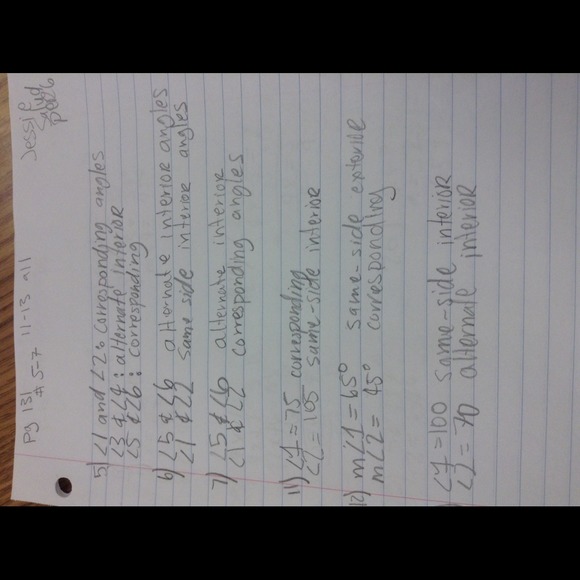 pg 131
#5-7 11-13 all
Jessie
5) <1 and <2: corresponding angles
<3 & <4: alternate interior
<5 & <6: corresponding
6) <5 & <6 alternate interior angles
<1 & <2 same side interior angles
7) <5 & <6 alternate interior
<1 & <2 corresponding angles
11) <1 = 75 corresponding
<2 = 105 same-side interior
12) m<1 = 65° same-side exterior
m<2 = 45° corresponding
) <1 = 100 same-side interior
<2 = 70 alternate interior